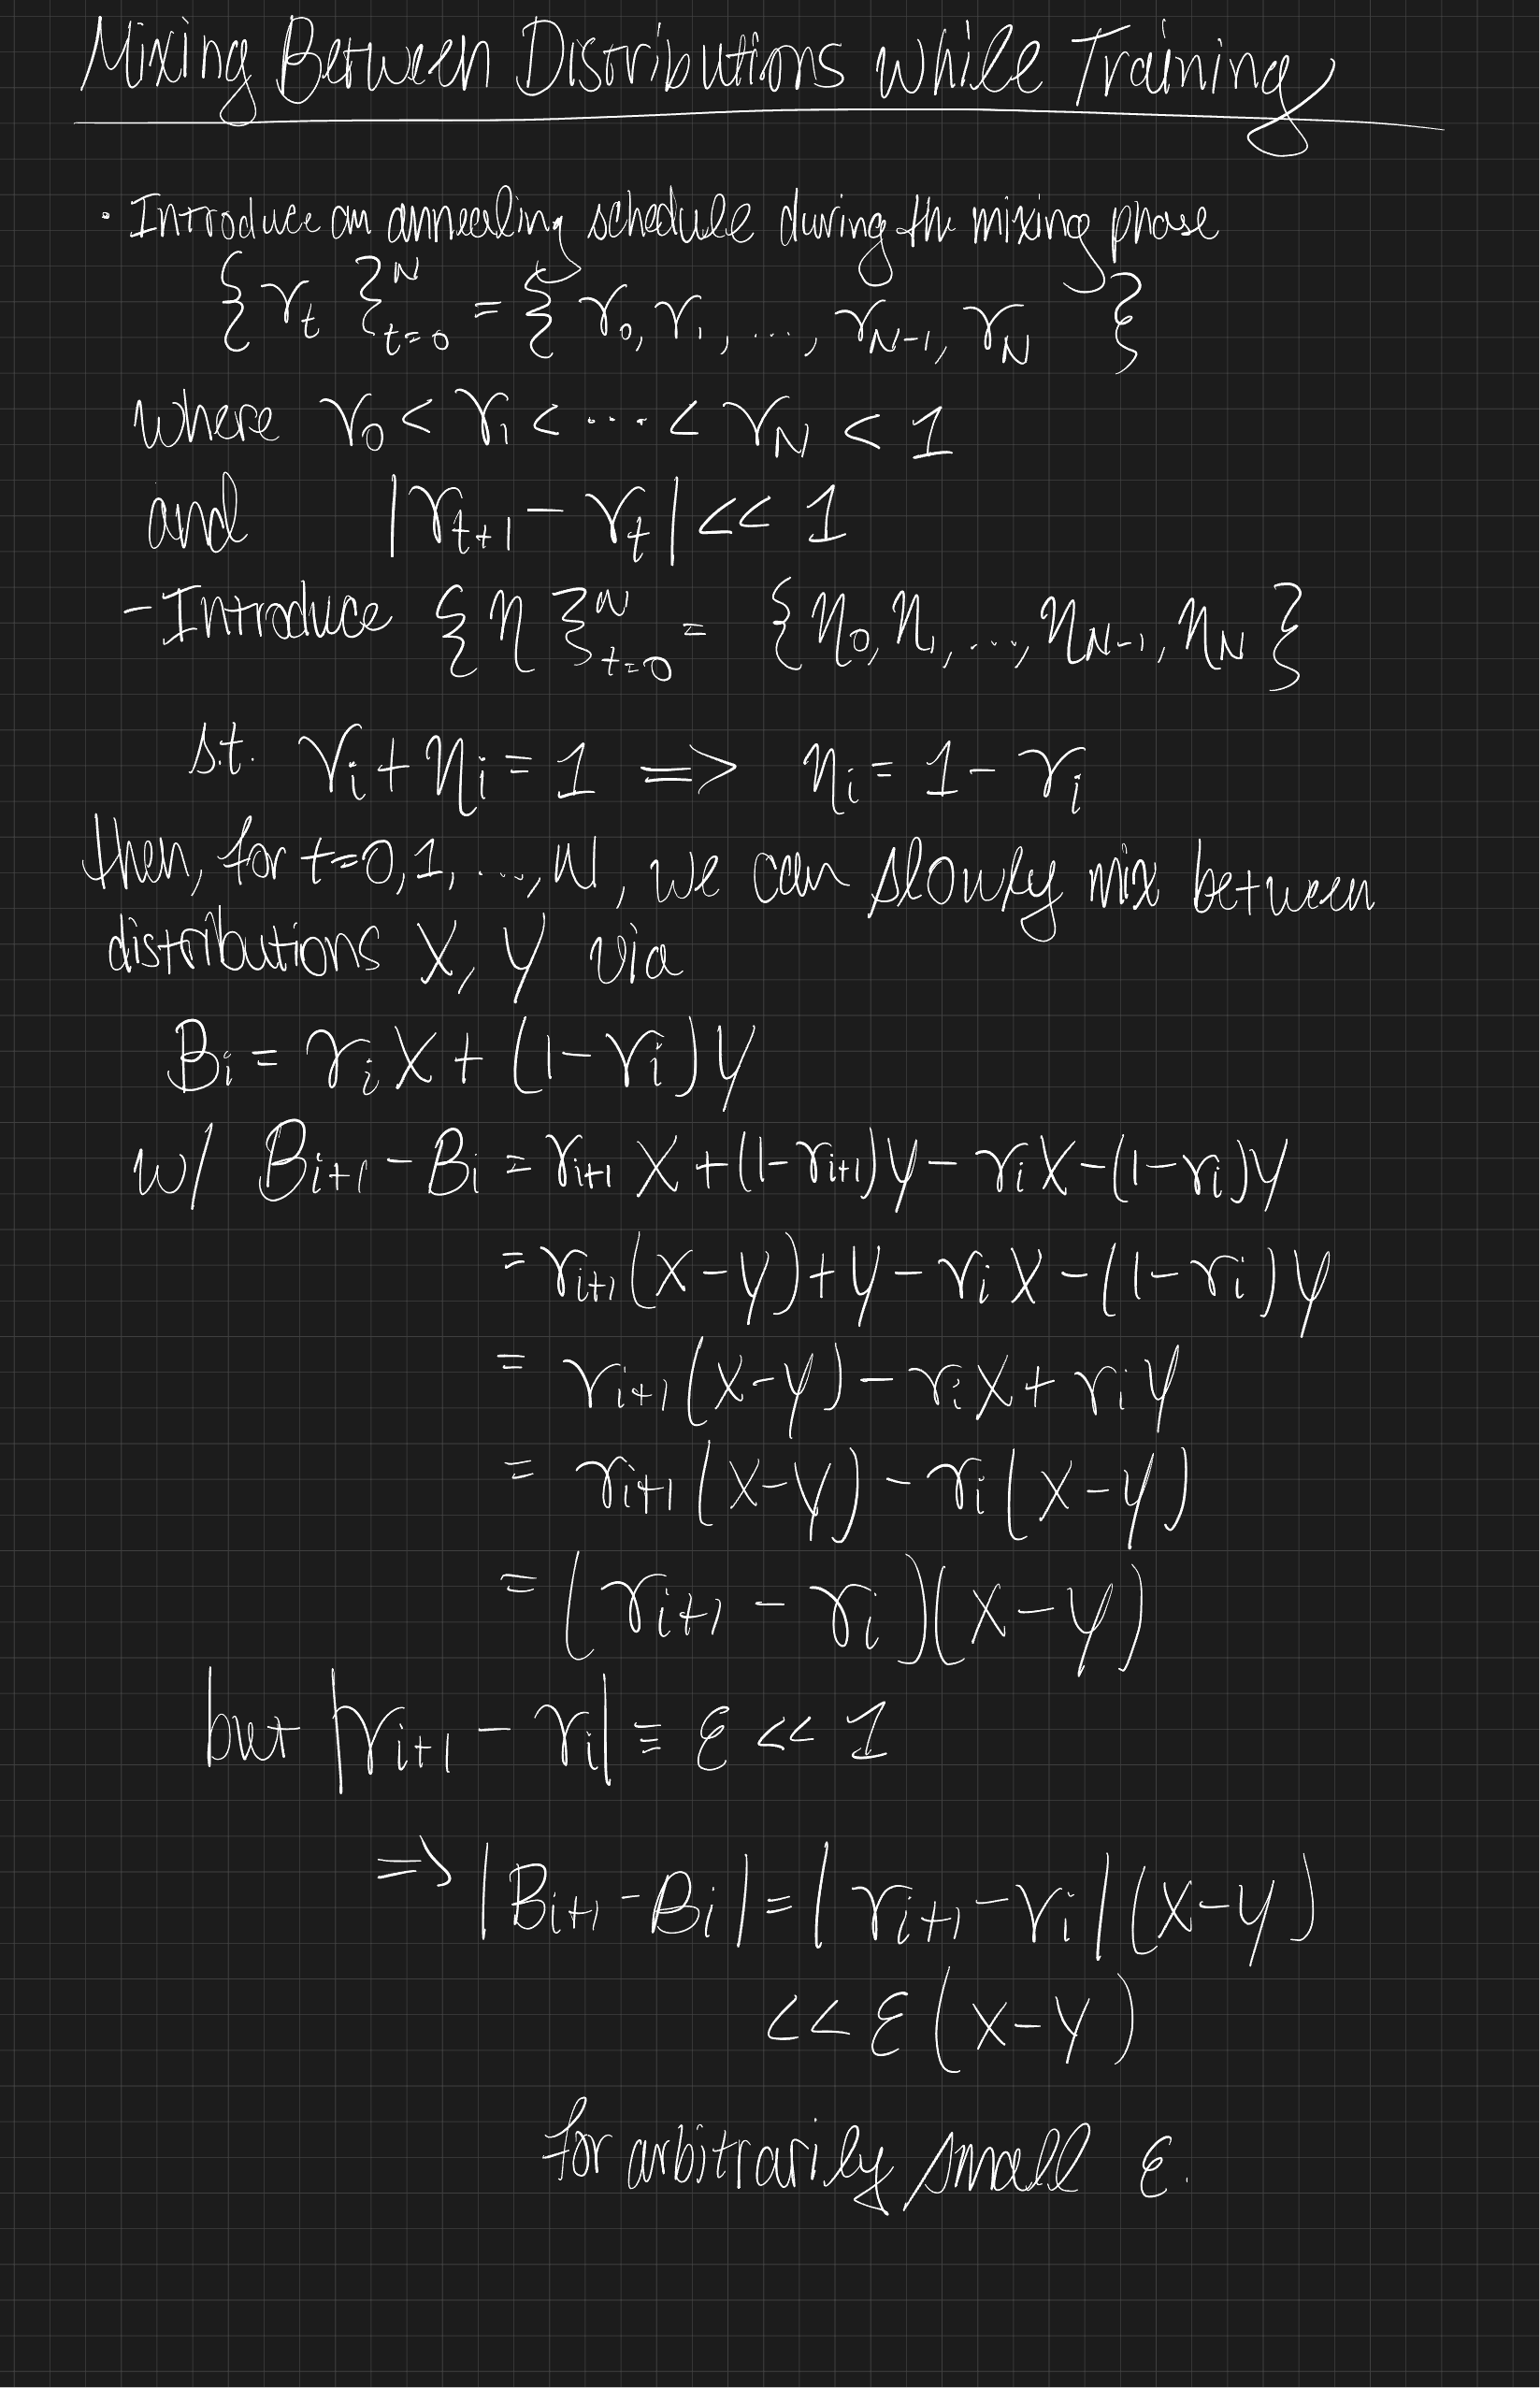 Mixing Between Distributions while Training
· Introduce an annealing schedule during the mixing phase
{γ_t}_{t=0}^N = {γ_0, γ_1, ..., γ_{N-1}, γ_N}
where γ_0 < γ_1 < ... < γ_N < 1
and |γ_{t+1} - γ_t| << 1
- Introduce {η}_{t=0}^N = {η_0, η_1, ..., η_{N-1}, η_N}
s.t. γ_i + η_i = 1 => η_i = 1 - γ_i
then, for t=0,1,...,N, we can slowly mix between
distributions X, Y via
B_i = γ_i X + (1-γ_i)Y
w/ B_{i+1} - B_i = γ_{i+1} X + (1-γ_{i+1})Y - γ_i X - (1-γ_i)Y
= γ_{i+1}(X-Y) + Y - γ_i X - (1-γ_i)Y
= γ_{i+1}(X-Y) - γ_i X + γ_i Y
= γ_{i+1}(X-Y) - γ_i(X-Y)
= (γ_{i+1} - γ_i)(X-Y)
but |γ_{i+1} - γ_i| ≡ ε << 1
=> |B_{i+1} - B_i| = |γ_{i+1} - γ_i|(X-Y)
<< ε(X-Y)
for arbitrarily small ε.